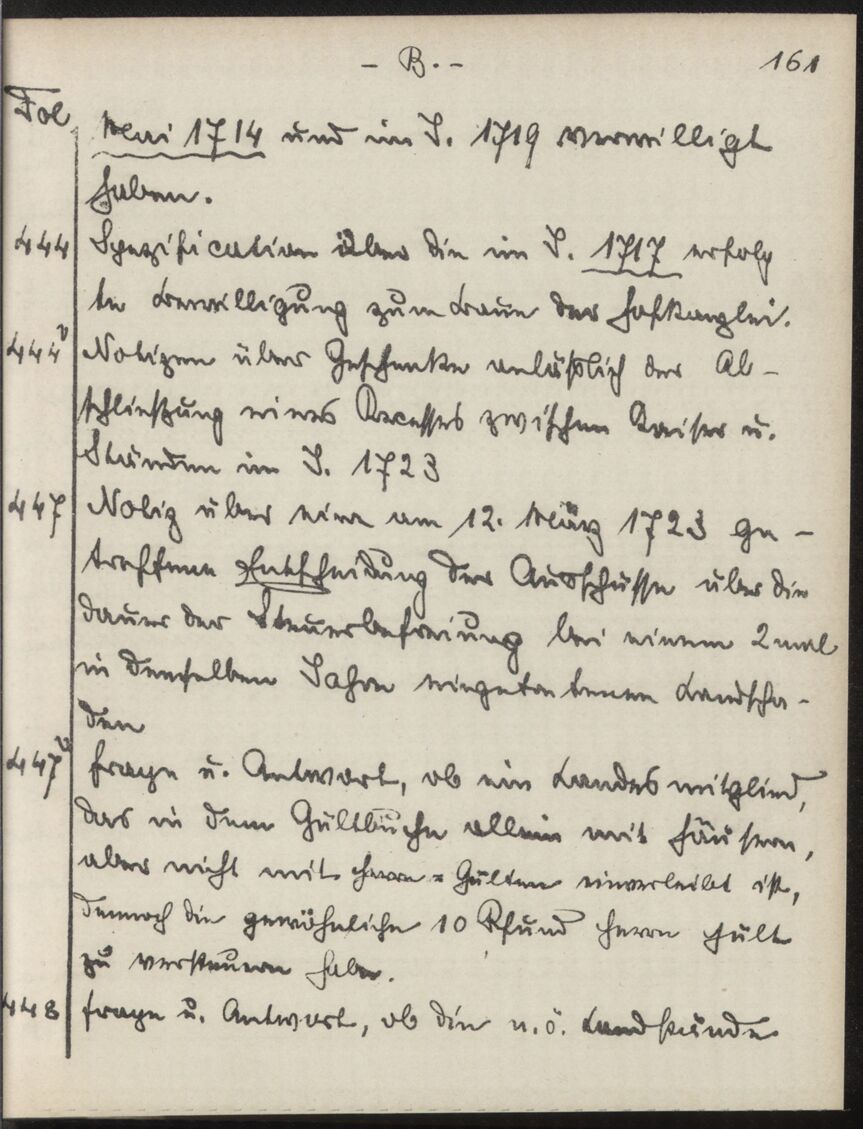 - B. -
161
Fol
Mai 1714 und im J. 1719 verwilligt
haben.
444 Spezification über die im J. 1717 erfolg
te Bewilligung zum Baue der Hofkanzlei.
444v Notizen über Geschenke anläßlich der Ab-
schließung eines Recesses zwischen Kaiser u.
Ständen im J. 1723
447 Notiz über eine am 12. März 1723 ge-
troffene Entscheidung der Ausschüsse über die
Dauer der Steuerbefreiung bei einem 2 mal
in demselben Jahre eingetretenen Landscha-
den
447v Frage u. Antwort, ob ein Landesmitglied,
das in dem Gültbuche allein mit Häusern,
aber nicht mit Herrn-Gülten einverleibt ist,
dennoch die gewöhnliche 10 Pfund Herrn Gült
zu versteuern habe.
448 Frage u. Antwort, ob die n.ö. Landstände